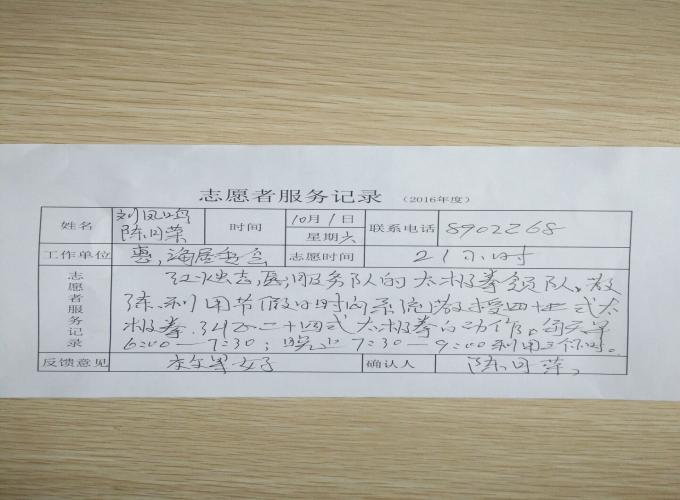 志愿者服务记录 (2016年度)
姓名 刘凤鸣 陈同荣 时间 10月1日 星期六 联系电话 8902268
工作单位 惠海居委会 志愿时间 21小时
志愿者服务记录
红烛志愿服务队的太极拳领队、教
练利用节假日时间系统教授四十二式太
极拳、34式二十四式太极拳的动作。每天早
6:00—7:30; 晚上 7:30—9:00利用三个小时。
反馈意见 确认人